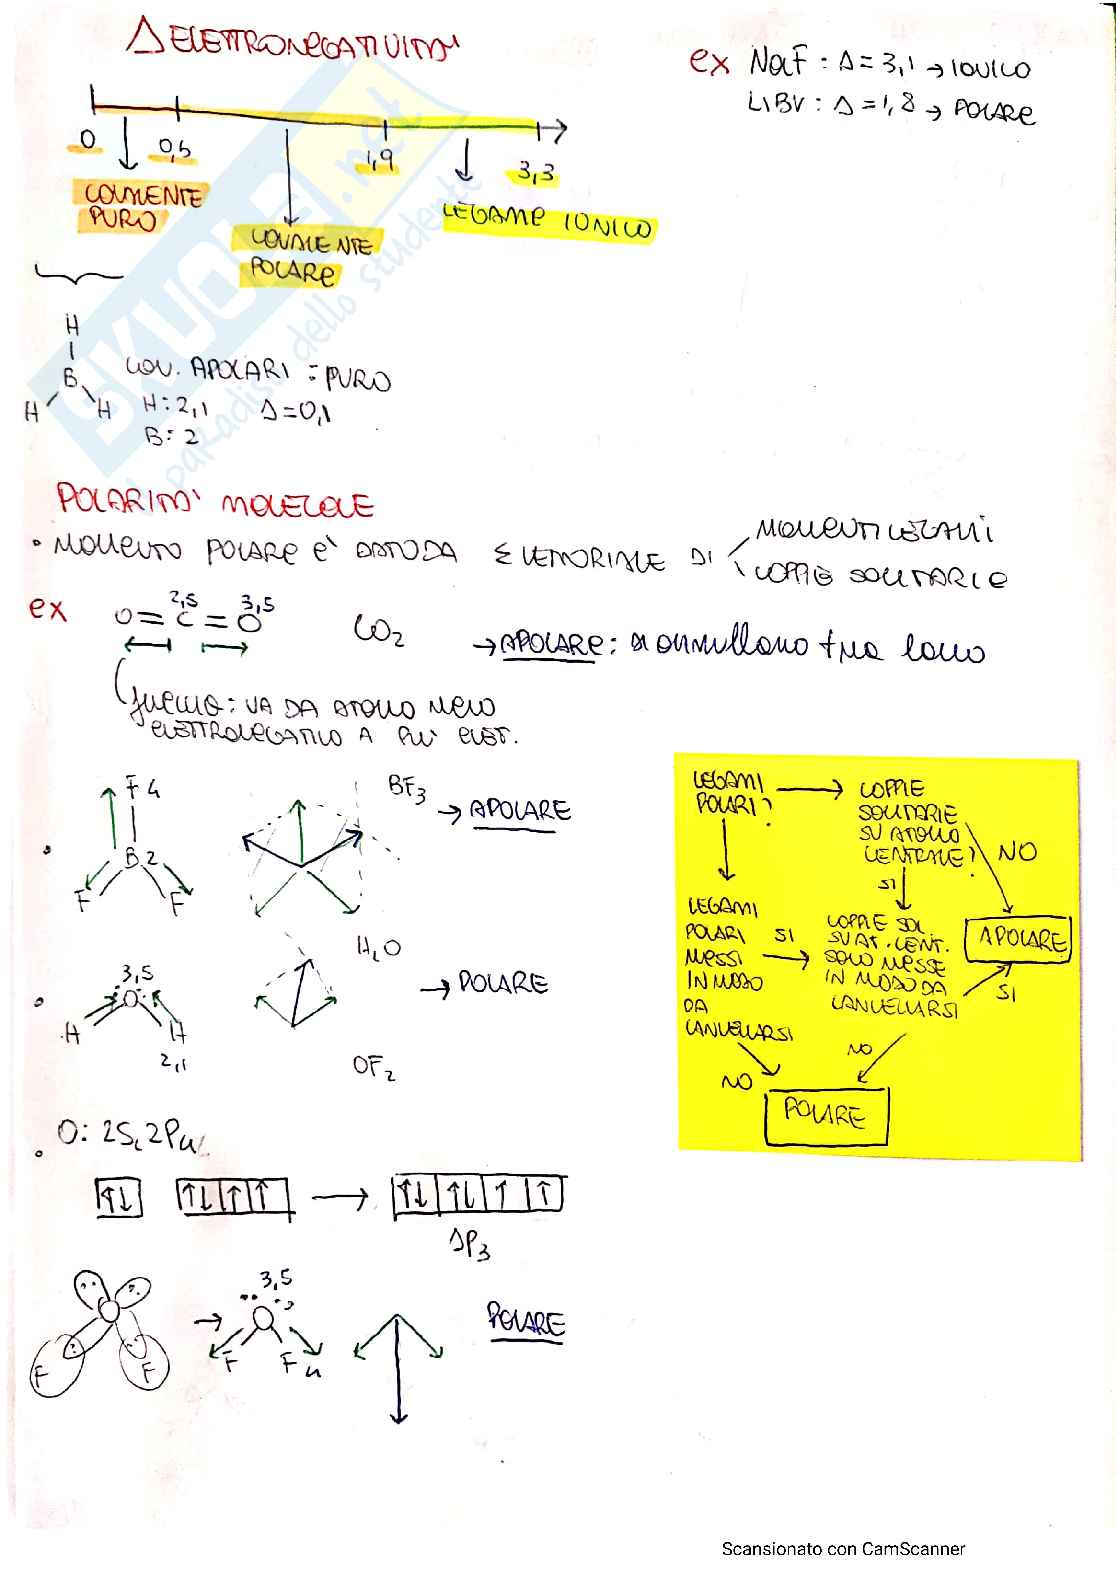 Δ ELETTRONEGATIVITA'
0
0,5
1,9
3,3
COVALENTE
PURO
COVALENTE
POLARE
LEGAME IONICO
ex NaF : Δ = 3,1 → IONICO
LiBr : Δ = 1,8 → POLARE
H
B
H H
COV. APOLARI = PURO
H: 2,1 Δ=0,1
B: 2
SKUOLA.net
il paradiso dello studente
POLARITA' MOLECOLE
• MOMENTO POLARE E' DATO DA Σ VETTORIALE DI
MOMENTI LEGAMI
COPPIE SOLITARIE
ex
2,5 3,5
O = C = O
CO2
→ APOLARE : si annullano tra loro
freccia: VA DA ATOMO MENO
ELETTRONEGATIVO A PIU' ELET.
F 4
B 2
F F
BF3
→ APOLARE
3,5
O
H H
2,1
H2O
→ POLARE
OF2
O: 2S2 2P4
↑↓ ↑↓ ↑ ↑ → ↑↓ ↑↓ ↑ ↑
sp3
F F
→
3,5
O
F F 4
POLARE
LEGAMI
POLARI?
COPPIE
SOLITARIE
SU ATOMO
CENTRALE?
NO
SI
LEGAMI
POLARI
MESSI
IN MODO
DA
CANCELLARSI
SI
COPPIE SOL.
SU AT. CENT.
SONO MESSE
IN MODO DA
CANCELLARSI
APOLARE
SI
NO
NO
POLARE
Scansionato con CamScanner